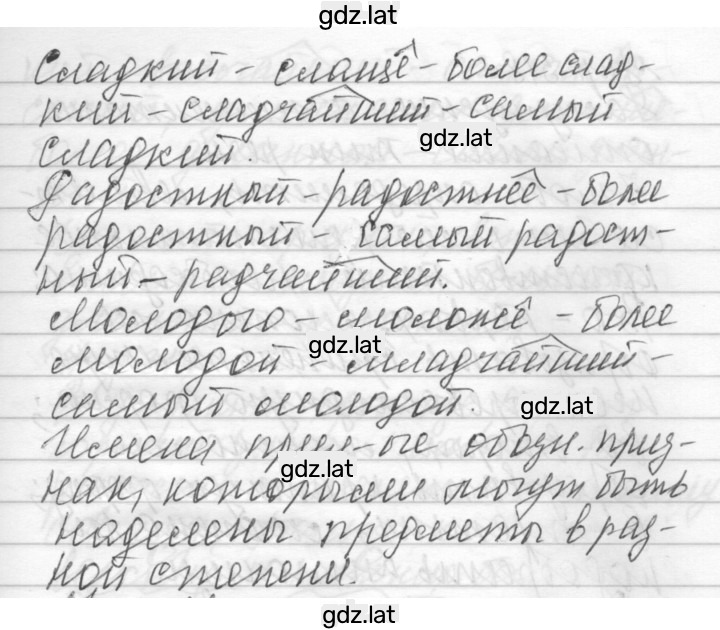 gdz.lat
Сладкий – слаще – более слад-
кий – сладчайший – самый
сладкий.
gdz.lat
Радостный – радостнее – более
радостный – самый радост-
ный – радчайший.
Молодого – моложе – более
gdz.lat
молодой – младчайший –
самый молодой.
gdz.lat
Имена прил-ые обозн. приз-
gdz.lat
нак, которыми могут быть
наделены предметы в раз-
ной степени.
gdz.lat